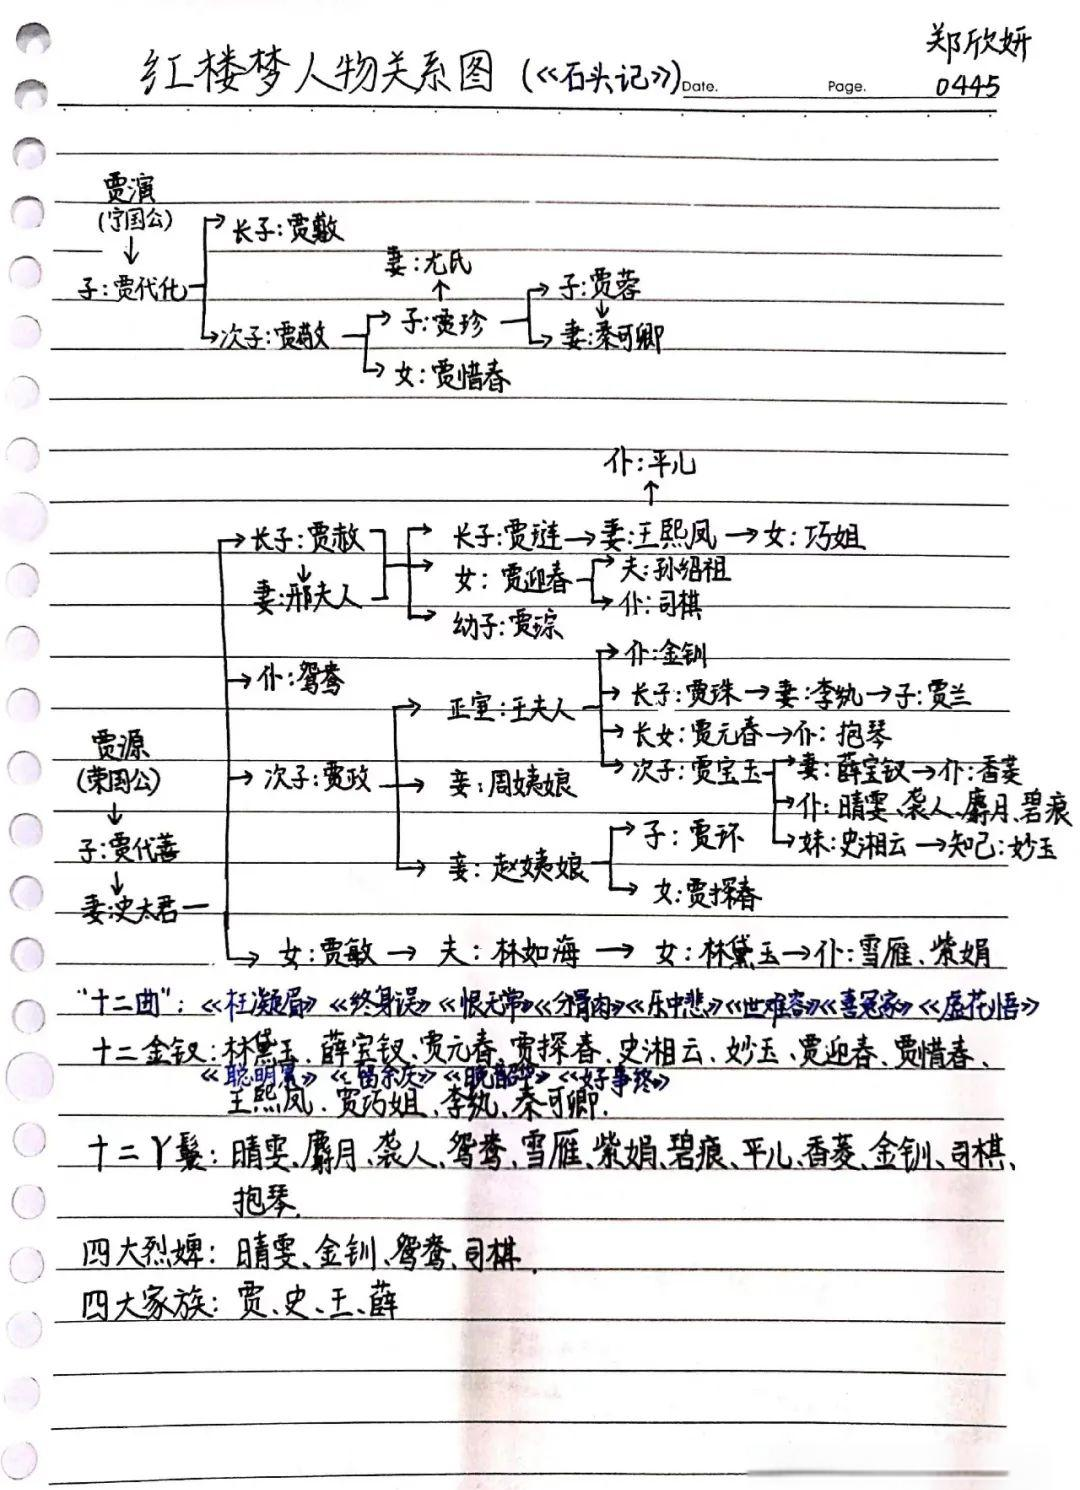 郑欣妍
红楼梦人物关系图(《石头记》) Date. Page. 0445
贾演
(宁国公)
长子:贾敷
妻:尤氏
子:贾代化
子:贾蓉
子:贾珍
次子:贾敬
妻:秦可卿
女:贾惜春
仆:平儿
长子:贾赦
长子:贾琏→妻:王熙凤→女:巧姐
女:贾迎春
夫:孙绍祖
妻:邢夫人
仆:司棋
幼子:贾琮
仆:金钏
仆:鸳鸯
长子:贾珠→妻:李纨→子:贾兰
正室:王夫人
长女:贾元春→仆:抱琴
贾源
(荣国公)
次子:贾政
妾:周姨娘
次子:贾宝玉
妻:薛宝钗→仆:香菱
仆:晴雯、袭人、麝月、碧痕
子:贾环
妹:史湘云→知己:妙玉
子:贾代善
妾:赵姨娘
女:贾探春
妻:史太君
女:贾敏→夫:林如海→女:林黛玉→仆:雪雁、紫娟
"十二曲":《枉凝眉》《终身误》《恨无常》《分骨肉》《乐中悲》《世难容》《喜冤家》《虚花悟》
十二金钗:林黛玉、薛宝钗、贾元春、贾探春、史湘云、妙玉、贾迎春、贾惜春、
《聪明累》《留余庆》《晚韶华》《好事终》
王熙凤、贾巧姐、李纨、秦可卿.
十二丫鬟:晴雯、麝月、袭人、鸳鸯、雪雁、紫娟、碧痕、平儿、香菱、金钏、司棋、
抱琴.
四大烈婢:晴雯、金钏、鸳鸯、司棋.
四大家族:贾、史、王、薛